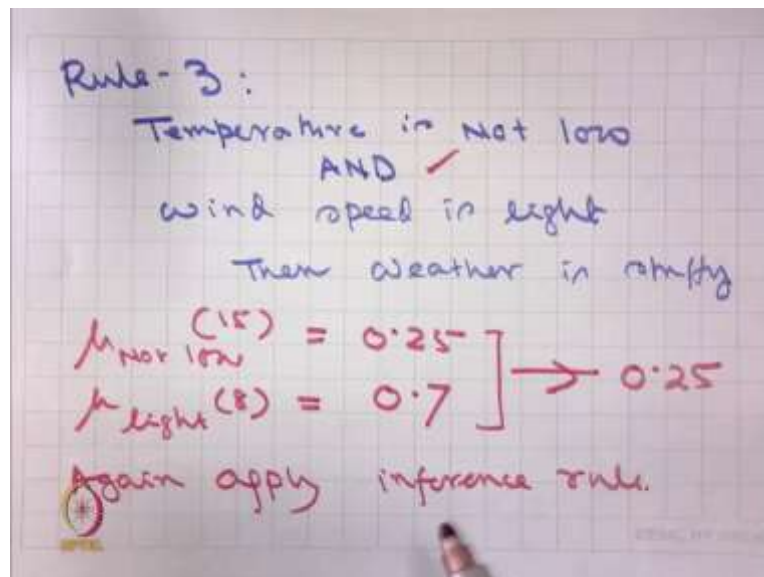 Rule-3:
Temperature is Not low
AND ✓
wind speed is light
Then weather is
μ Not low (15) = 0.25
μ light (8) = 0.7 → 0.25
Again apply inference rule.
NPTEL